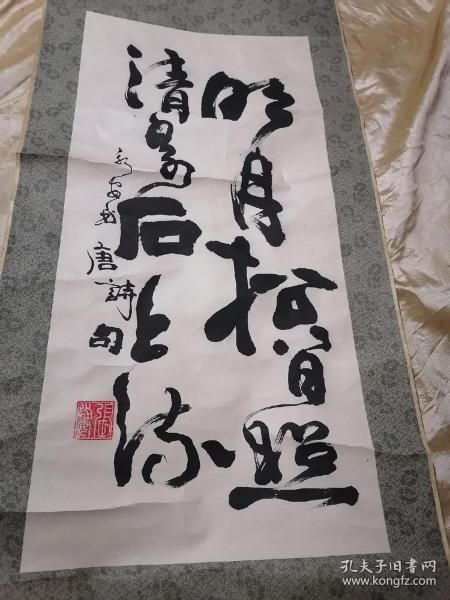 明月松間照
清泉石上流
唐詩句
孔夫子旧书网
www.kongfz.com